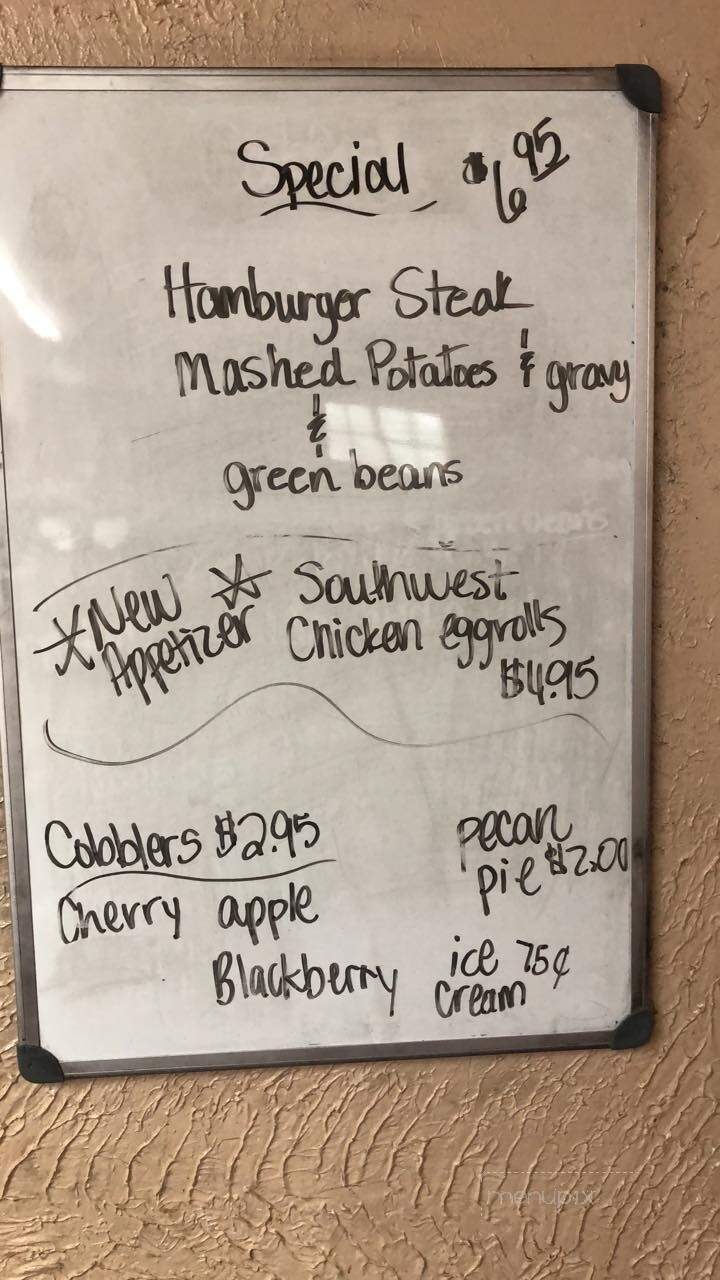 Special $6.95
Hamburger Steak
Mashed Potatoes & gravy
&
green beans
*New * Southwest
Appetizer Chicken eggrolls
$4.95
Cobblers $2.95
Cherry apple
Blackberry
pecan
pie $2.00
ice 75¢
Cream
menupix